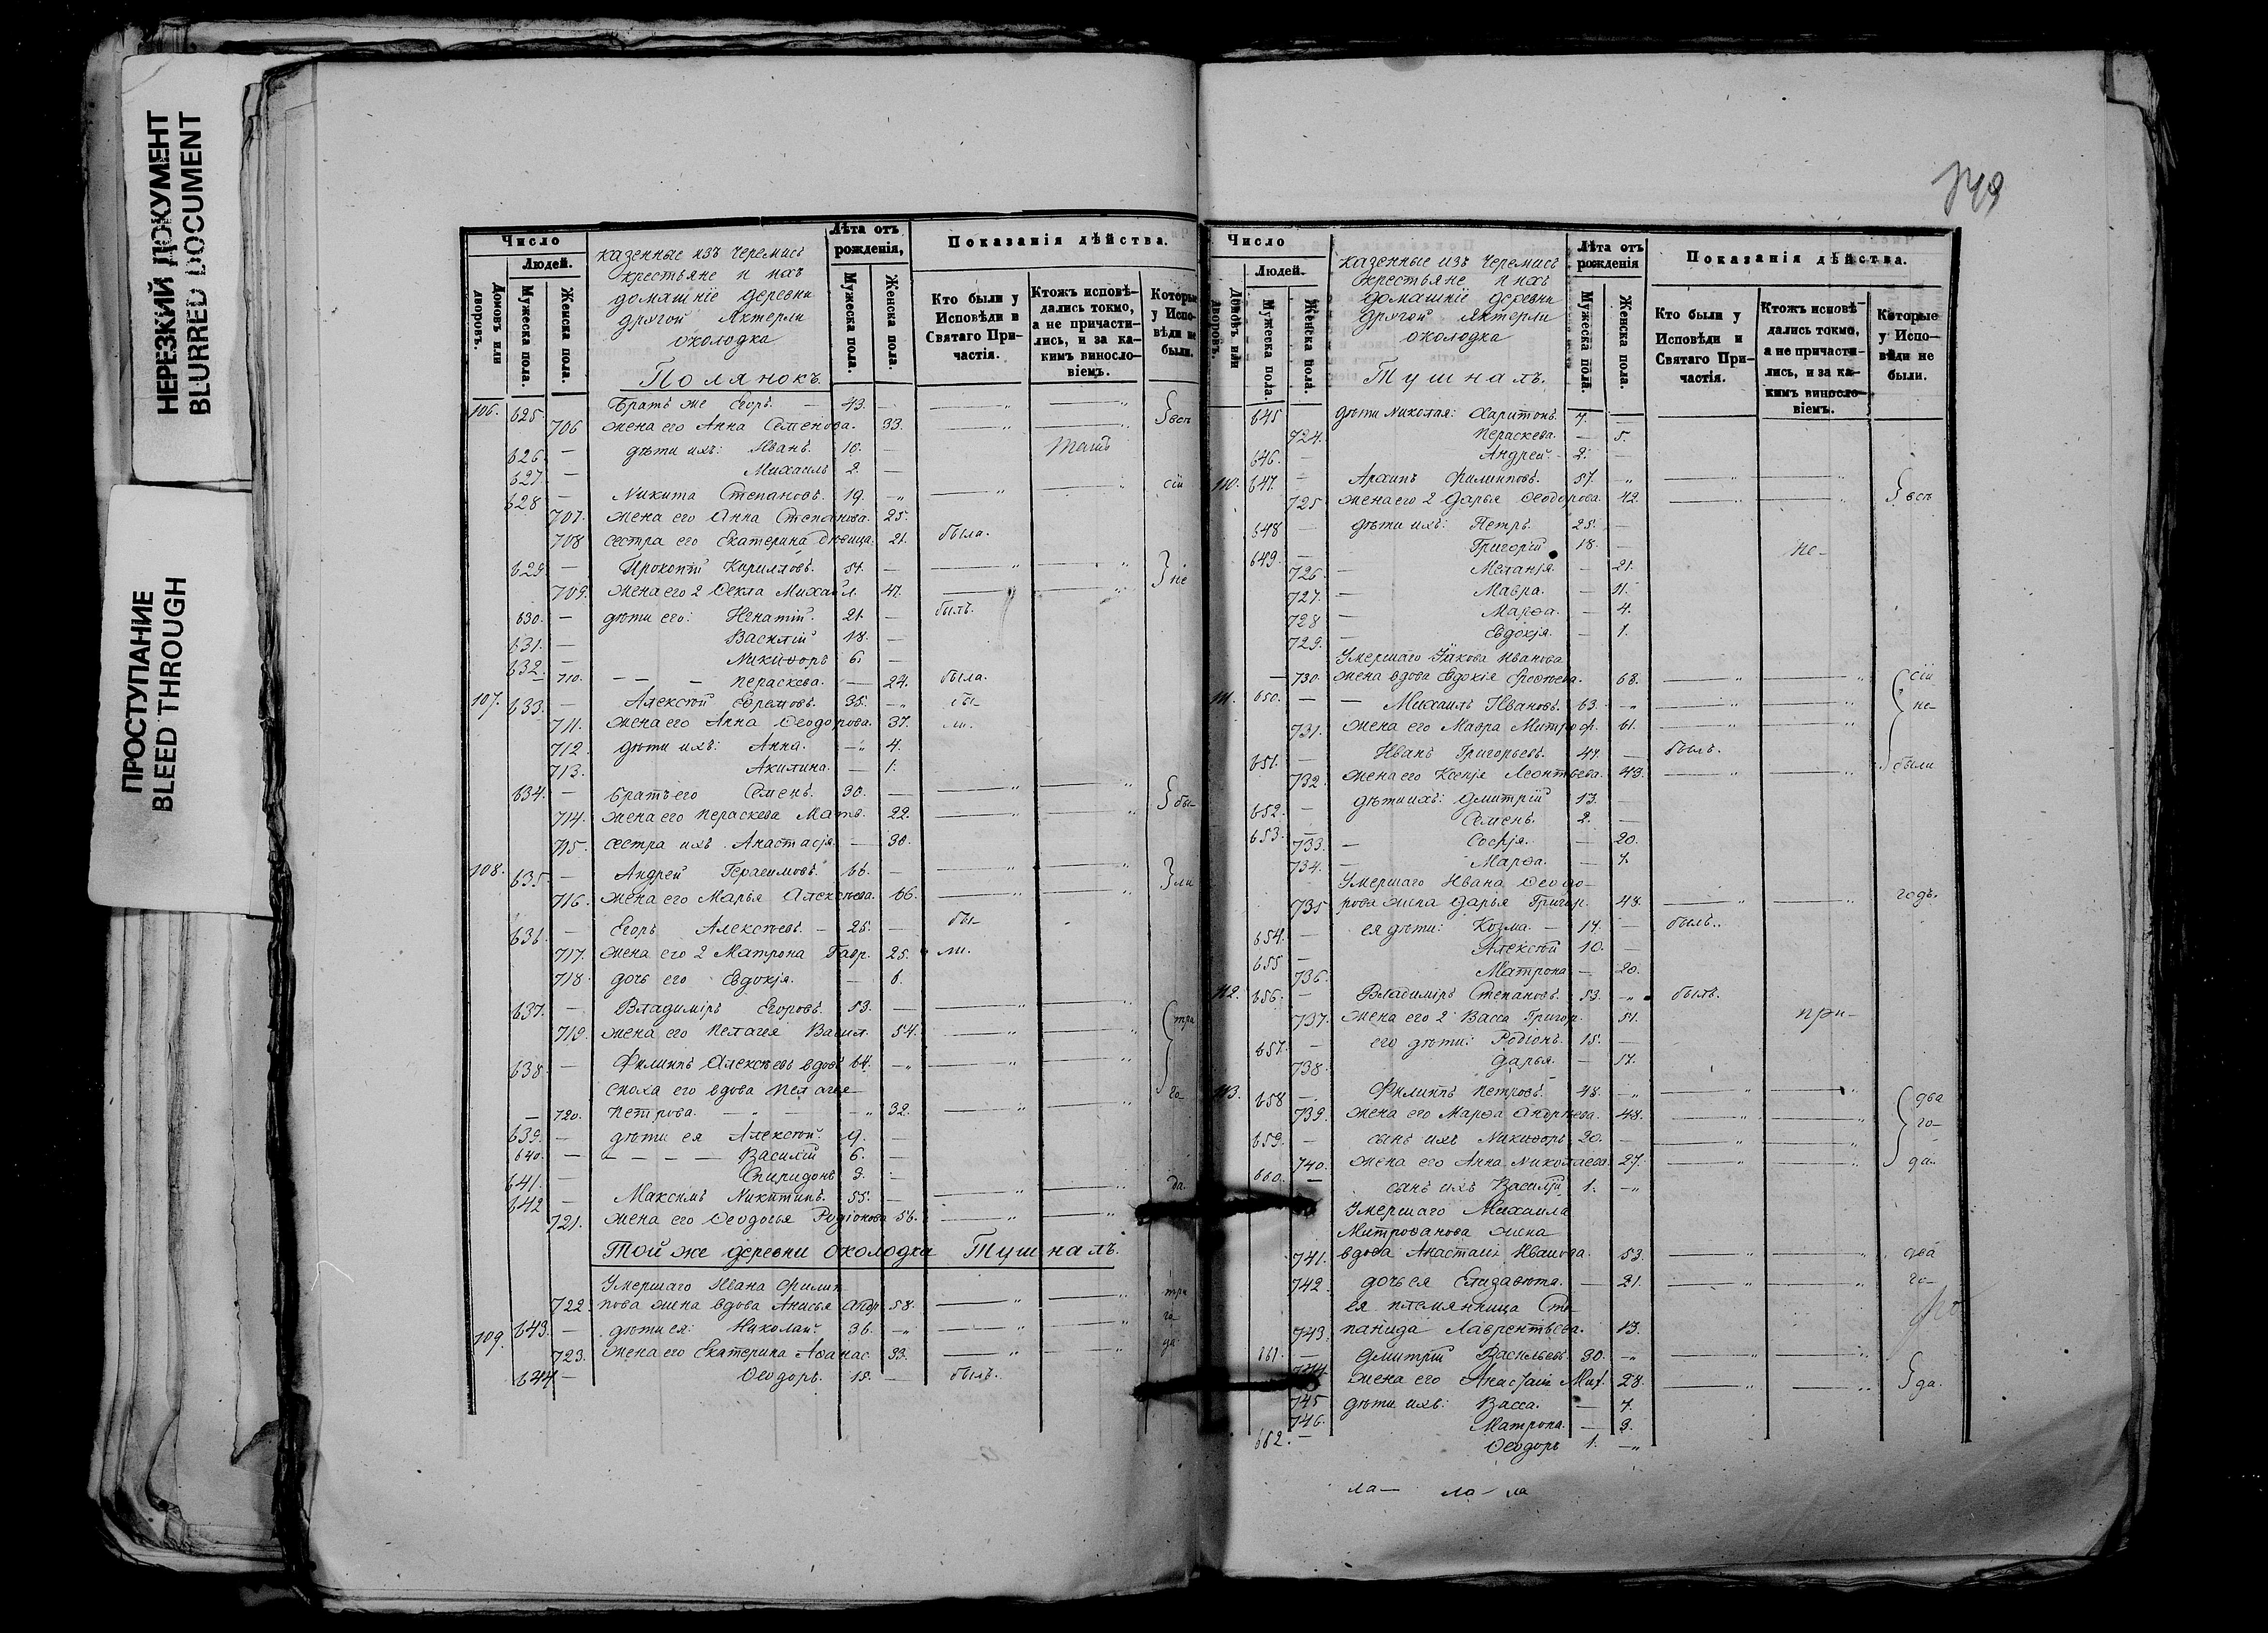 НЕРЕЗКИЙ ДОКУМЕНТ
BLURRED DOCUMENT
ПРОСТУПАНИЕ
BLEED THROUGH
Число
Людей.
Домовъ или дворовъ.
Мужеска пола.
Женска пола.
казенные изъ черемисъ
крестьяне и ихъ
домашніе деревни
другой Яктерли
околодка
Полянокъ.
Лѣта отъ рожденія,
Мужеска пола.
Женска пола.
Показанія дѣйства.
Кто были у Исповѣди и Святаго Причастія.
Ктожъ исповѣдались токмо, а не причастились, и за какимъ винословіемъ.
Которые у Исповѣди не были.
106. 625. Братъ же Егоръ. — 43. —
706 жена его Анна Семенова. 33. всѣ
626. — дѣти ихъ: Иванъ. 10. —
627. — Михаилъ 2. —
628 — Никита Степановъ. 19. сіи
707. жена его Анна Степанова. 25.
708 сестра его Екатерина дѣвица. 21. была.
629 — Прокопій Кириловъ. 54. —
709. жена его 2 Ѳекла Михайл. 47. не
630. — дѣти его: Игнатій. 21. — былъ.
631. — Василій 18. —
632. — Никифоръ 6. —
710. — — — Параскева. — 24. была.
107. 633. — Алексѣй Ефремовъ. 35. бы-
711. жена его Анна Ѳеодорова. 37. ли.
712. дѣти ихъ: Анна. 4.
713. Акилина. — 1.
634. — братъ его Семенъ. 30. —
714. жена его Параскева Матв. 22. бы-
715. сестра ихъ Анастасія. — 30.
108. 635. — Андрей Герасимовъ. 66. —
716. жена его Марья Алексѣева. 66. ли
636. — Егоръ Алексѣевъ. — 25. — бы-
717. жена его 2 Матрона Гавр. 25. ли.
718. дочь его Евдокія. — 6.
637. — Владиміръ Егоровъ. 53. —
719. жена его Пелагея Васил. 54. три
638. — Филиппъ Алексѣевъ вдовъ 64.
сноха его вдова Пелагея го
— 720. Петрова. 32.
639. — дѣти ея Алексѣй. 9. —
640. — — — — Василій 6. —
641. — Спиридонъ 3. —
642 — Максимъ Никитинъ. 55. — да.
721. жена его Ѳеодосья Родіонова 56.
Той же деревни околодка Тушналъ.
Умершаго Ивана Филип
722. пова жена вдова Анисья Андр 58. три
109. 643. — дѣти ея: Николай. 36. го
723. жена его Екатерина Аѳанас. 33. да
644 — Ѳеодоръ. 18. — былъ.
Число
Людей.
Домовъ или дворовъ.
Мужеска пола.
Женска пола.
казенные изъ черемисъ
крестьяне и ихъ
домашніе деревни
другой Яктерли
околодка
Тушналъ.
Лѣта отъ рожденія
Мужеска пола.
Женска пола.
Показанія дѣйства.
Кто были у Исповѣди и Святаго Причастія.
Ктожъ исповѣдались токмо, а не причастились, и за какимъ винословіемъ.
Которые у Исповѣди не были.
645 дѣти Николая: Харитонъ. 7. —
724. Параскева. — 5.
646. — Андрей. 2. —
110. 647. — Архипъ Филипповъ. 57.
725. жена его 2 Дарья Ѳеодорова. 42. всѣ
648 — дѣти ихъ: Петръ. 25. —
649. — Григорій 18. — не-
726. — Меланія. — 21.
727. — Мавра. — 11.
728 — Марѳа. — 4.
729. — Евдокія. — 1.
Умершаго Іакова Иванова
— 730. жена вдова Евдокія 68. сіи
111. 650. — — Михаилъ Ивановъ. 63. не-
731. жена его Мавра Митроф. 61.
651. — Иванъ Григорьевъ. 47. — былъ.
732. жена его Ксенія Леонтьева. 43. были
652. — дѣти ихъ: Дмитрій 13. —
653. — Семенъ. 2. —
733. — Софія. — 20.
734. — Марѳа. — 7.
Умершаго Ивана Ѳеодо-
735 рова жена Дарья Григор. 48. годъ.
654. — ея дѣти: Козма. — 14. — былъ..
655 — Алексѣй 10. —
736. Матрона — 20.
112. 656. — Владиміръ Степановъ. 53. былъ.
737. жена его 2 Васса Григор. 51. при-
657. — его дѣти: Родіонъ. 15. —
738. Дарья. — 17.
113. 658 — Филиппъ Петровъ. 48. два
739. жена его Марѳа Андрѣева. 48. го-
659. — сынъ ихъ Никифоръ 20. —
740. жена его Анна Николаева. 27. да
660. — сынъ ихъ Василій 1.
Умершаго Михаила
Митрофанова жена
741. вдова Анастасія Иванова. 53. два
742. дочь ея Елизавета. — 21. го-
ея племянница Сте-
743. панида Лаврентьева. 13.
661. — Дмитрій Васильевъ. 30.
744 жена его Анастасія Мих. 28. да.
745 дѣти ихъ: Васса. — 7.
746. Матрона. — 3.
662. — Ѳеодоръ 1.
ла— ла— ла